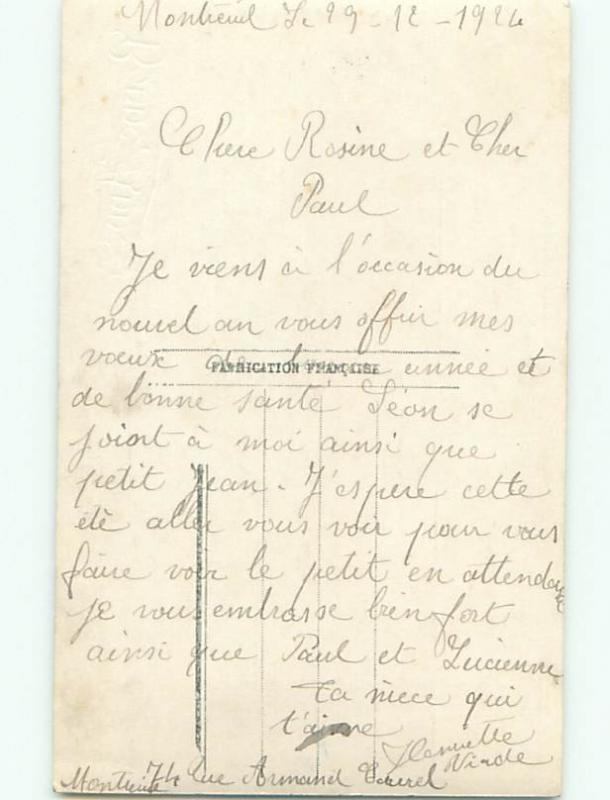 Montreuil Le 29-12-1924
Chere Rosine et Cher
Paul
Je viens à l'occasion du
nouvel an vous offrir mes
vœux de bonne année et
FABRICATION FRANÇAISE
de bonne santé Léon se
joint à moi ainsi que
petit Jean. J'espere cette
été aller vous voir pour vous
faire voir le petit en attendant
je vous embrasse bien fort
ainsi que Paul et Lucienne
ta niece qui
t'aime
Henriette
74 rue Armand Carrel
Montreuil